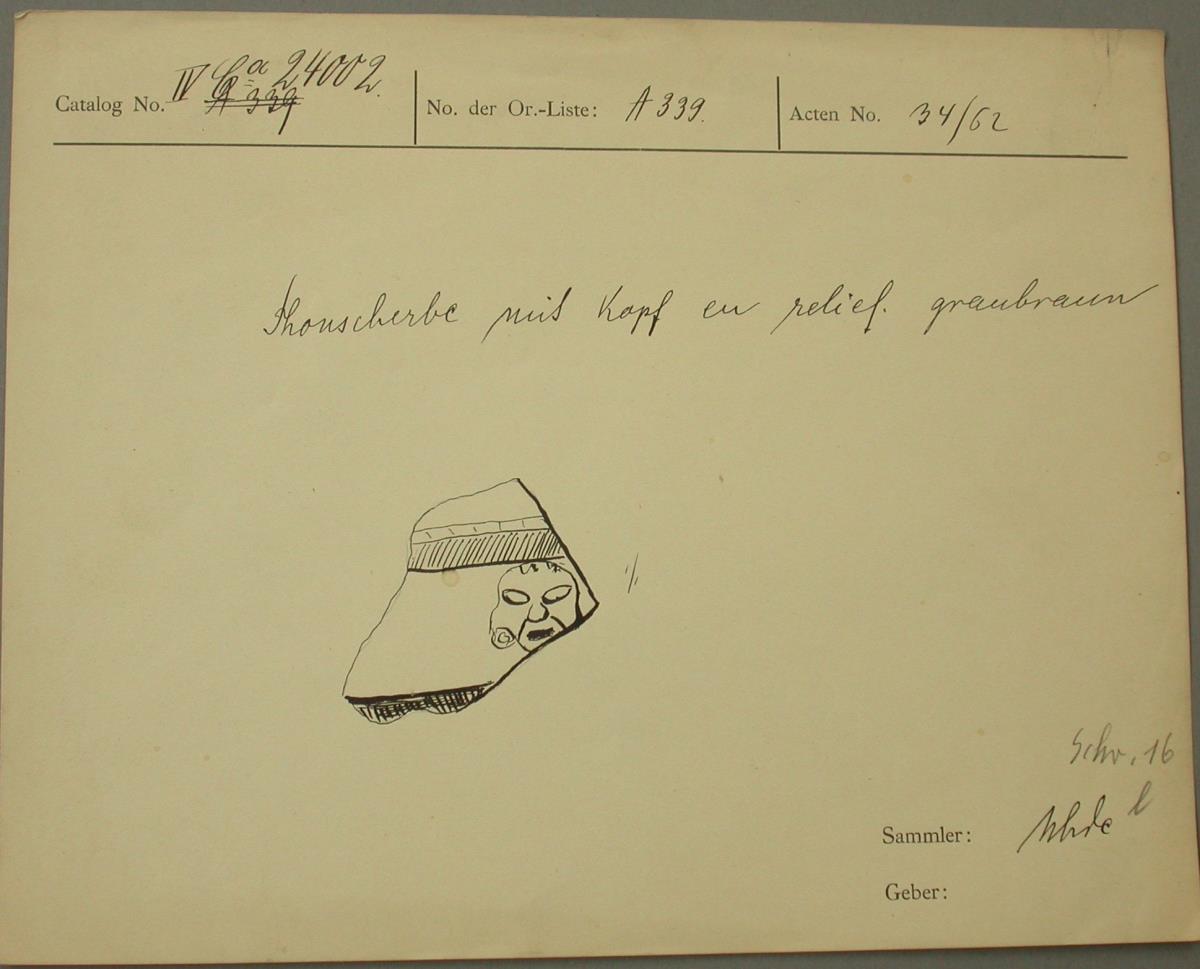 Catalog No. IV Ca 24002.
A 339
No. der Or.-Liste: A 339.
Acten No. 34/62
Thonscherbe mit Kopf en relief. graubraun
1/1
Schr. 16
l
Sammler: Uhde
Geber: